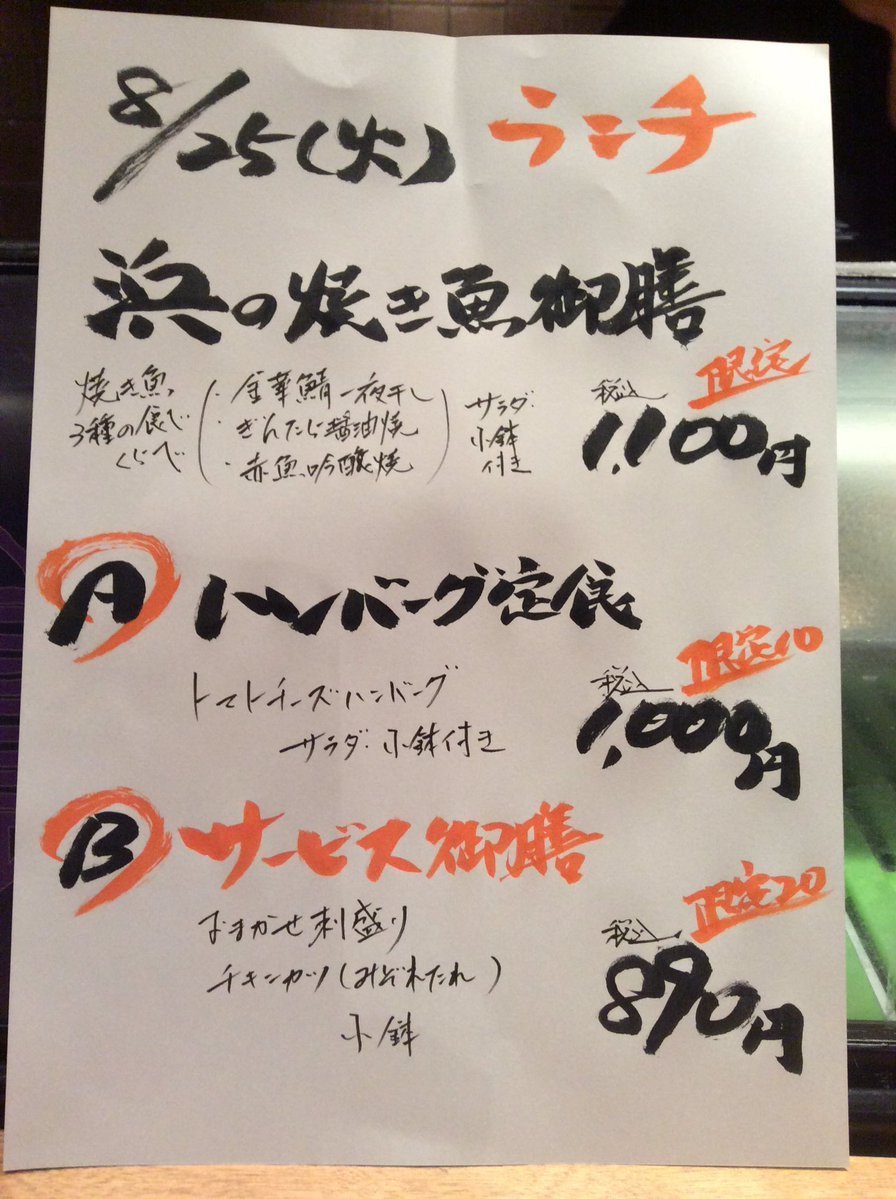 8/25(火) ランチ
浜の焼き魚御膳
限定
焼き魚
3種の食べ
くらべ
・金華鯖一夜干し
・ぎんだら醤油焼
・赤魚吟醸焼
サラダ・
小鉢
付き
税込
1,100円
A ハンバーグ定食
限定10
トマトチーズハンバーグ
サラダ・小鉢付き
税込
1,000円
B サービス御膳
限定20
おまかせ刺盛り
チキンカツ(みぞれたれ)
小鉢
税込
890円